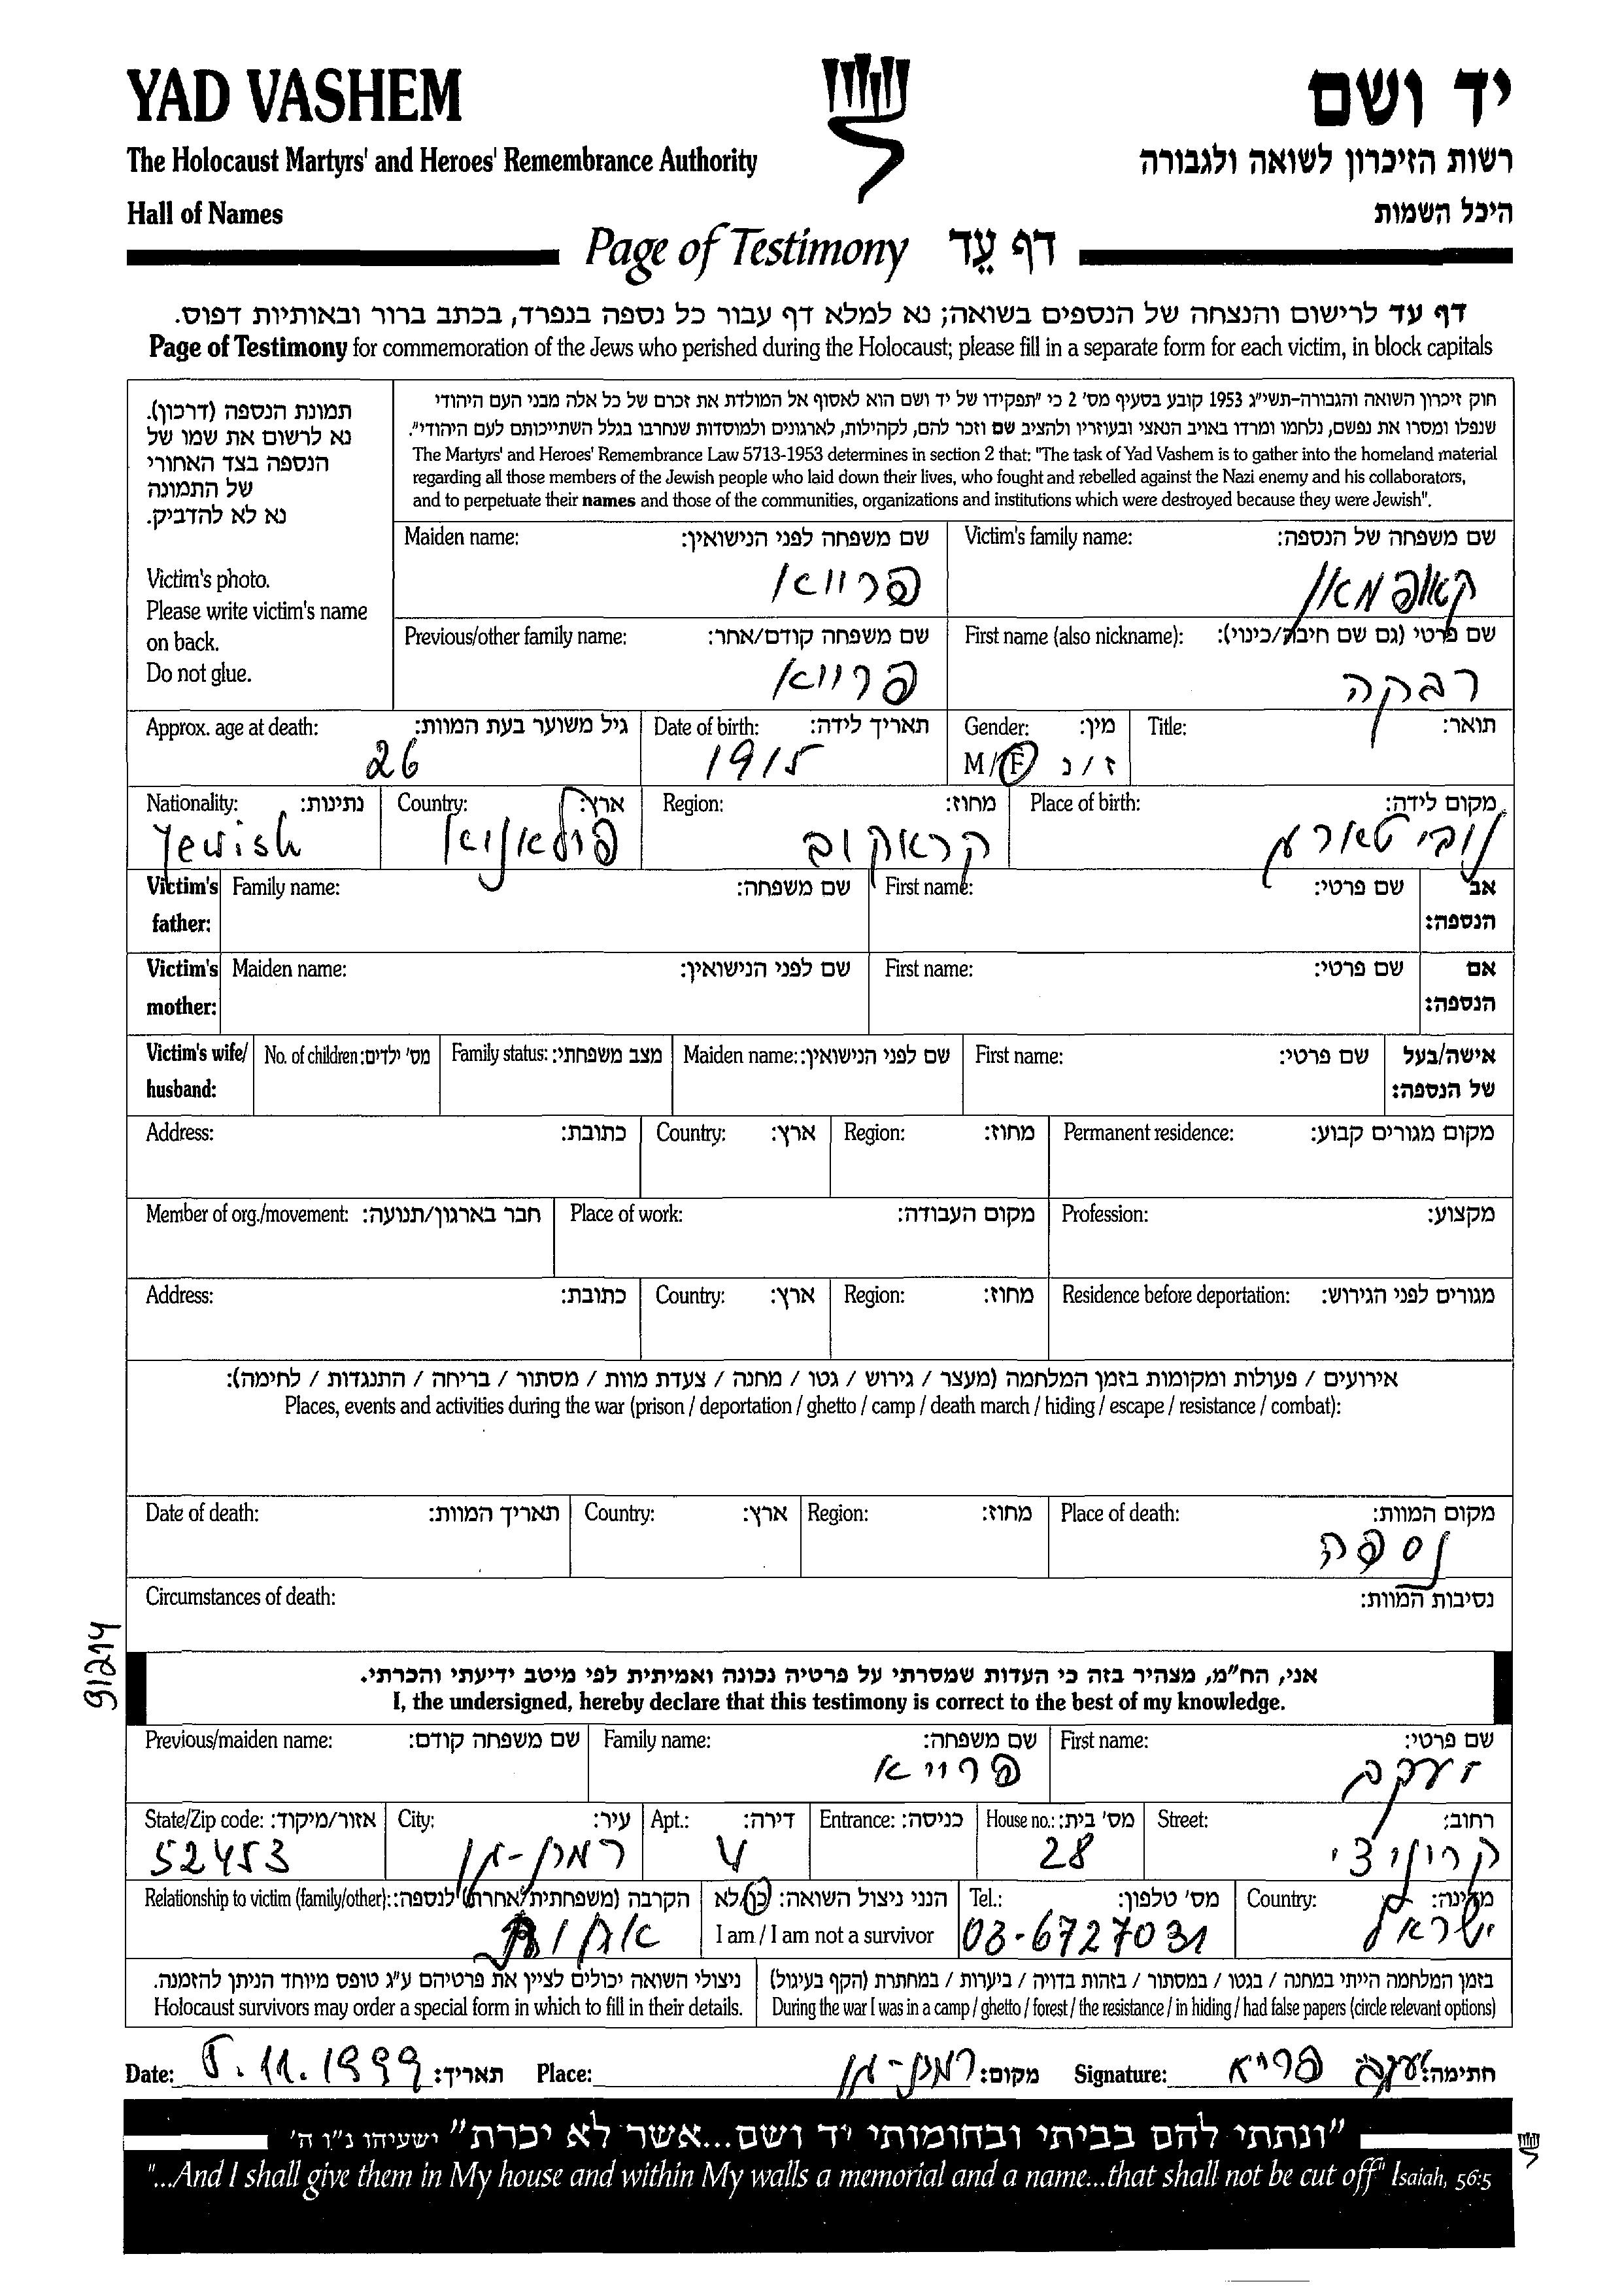 YAD VASHEM
יד ושם
The Holocaust Martyrs' and Heroes' Remembrance Authority
רשות הזיכרון לשואה ולגבורה
Hall of Names
היכל השמות
Page of Testimony דף עֵד
דף עד לרישום והנצחה של הנספים בשואה; נא למלא דף עבור כל נספה בנפרד, בכתב ברור ובאותיות דפוס.
Page of Testimony for commemoration of the Jews who perished during the Holocaust; please fill in a separate form for each victim, in block capitals
תמונת הנספה (דרכון).
נא לרשום את שמו של
הנספה בצד האחורי
של התמונה
נא לא להדביק.
Victim's photo.
Please write victim's name
on back.
Do not glue.
חוק זיכרון השואה והגבורה-תשי"ג 1953 קובע בסעיף מס' 2 כי "תפקידו של יד ושם הוא לאסוף אל המולדת את זכרם של כל אלה מבני העם היהודי
שנפלו ומסרו את נפשם, נלחמו ומרדו באויב הנאצי ובעוזריו ולהציב שם וזכר להם, לקהילות, לארגונים ולמוסדות שנחרבו בגלל השתייכותם לעם היהודי".
The Martyrs' and Heroes' Remembrance Law 5713-1953 determines in section 2 that: "The task of Yad Vashem is to gather into the homeland material
regarding all those members of the Jewish people who laid down their lives, who fought and rebelled against the Nazi enemy and his collaborators,
and to perpetuate their names and those of the communities, organizations and institutions which were destroyed because they were Jewish".
Maiden name: שם משפחה לפני הנישואין: Victim's family name: שם משפחה של הנספה:
פרייא קאופמאן
Previous/other family name: שם משפחה קודם/אחר: First name (also nickname): שם פרטי (גם שם חיבה/כינוי):
פרייא רבקה
Approx. age at death: גיל משוער בעת המוות: Date of birth: תאריך לידה: Gender: מין: Title: תואר:
26 1915 M/F ז/נ
Nationality: נתינות: Country: ארץ: Region: מחוז: Place of birth: מקום לידה:
Jewish פולאניא קראקוב נובי טארג
Victim's father: Family name: שם משפחה: First name: שם פרטי: אב הנספה:
Victim's mother: Maiden name: שם לפני הנישואין: First name: שם פרטי: אם הנספה:
Victim's wife/husband: No. of children: מס' ילדים: Family status: מצב משפחתי: Maiden name: שם לפני הנישואין: First name: שם פרטי: אישה/בעל של הנספה:
Address: כתובת: Country: ארץ: Region: מחוז: Permanent residence: מקום מגורים קבוע:
Member of org./movement: חבר בארגון/תנועה: Place of work: מקום העבודה: Profession: מקצוע:
Address: כתובת: Country: ארץ: Region: מחוז: Residence before deportation: מגורים לפני הגירוש:
אירועים / פעולות ומקומות בזמן המלחמה (מעצר / גירוש / גטו / מחנה / צעדת מוות / מסתור / בריחה / התנגדות / לחימה):
Places, events and activities during the war (prison / deportation / ghetto / camp / death march / hiding / escape / resistance / combat):
Date of death: תאריך המוות: Country: ארץ: Region: מחוז: Place of death: מקום המוות:
נספה
Circumstances of death: נסיבות המוות:
91214
אני, הח"מ, מצהיר בזה כי העדות שמסרתי על פרטיה נכונה ואמיתית לפי מיטב ידיעתי והכרתי.
I, the undersigned, hereby declare that this testimony is correct to the best of my knowledge.
Previous/maiden name: שם משפחה קודם: Family name: שם משפחה: First name: שם פרטי:
פרייא יעקב
State/Zip code: אזור/מיקוד: City: עיר: Apt.: דירה: Entrance: כניסה: House no.: מס' בית: Street: רחוב:
52453 רמת-גן 4 28 קריניצי
Relationship to victim (family/other): הקרבה (משפחתית/אחרת) לנספה: הנני ניצול השואה: כן/לא Tel.: מס' טלפון: Country: מדינה:
אחות I am / I am not a survivor 03-6727031 ישראל
בזמן המלחמה הייתי במחנה / בגטו / במסתור / בזהות בדויה / ביערות / במחתרת (הקף בעיגול)
During the war I was in a camp / ghetto / forest / the resistance / in hiding / had false papers (circle relevant options)
ניצולי השואה יכולים לציין את פרטיהם ע"ג טופס מיוחד הניתן להזמנה.
Holocaust survivors may order a special form in which to fill in their details.
Date: 5.11.1999 תאריך: Place: רמת-גן מקום: Signature: יעקב פרייא חתימה:
"ונתתי להם בביתי ובחומותי יד ושם...אשר לא יכרת" ישעיהו נ"ו ה'
"...And I shall give them in My house and within My walls a memorial and a name...that shall not be cut off" Isaiah, 56:5